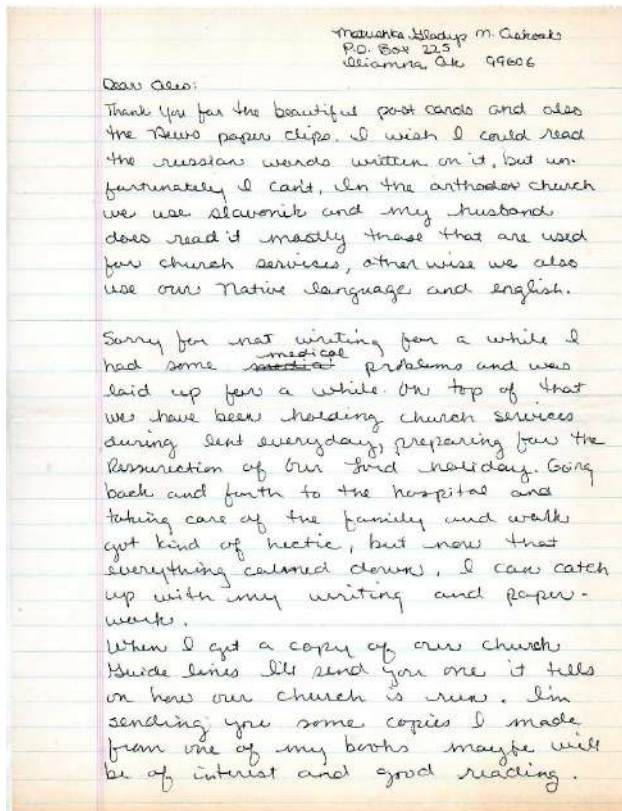 Matushka Gladys M. Askoak
P.O. Box 225
Iliamna, Ak 99606
Dear Alex:
Thank You for the beautiful post cards and also
the News paper clips. I wish I could read
the russian words written on it, but un-
fortunately I can't, In the orthodox church
we use slavonik and my husband
does read it mostly those that are used
for church services, other wise we also
use our Native language and english.
Sorry for not writing for a while I
had some medical problems and was
laid up for a while. On top of that
we have been holding church services
during lent everyday, preparing for the
Ressurection of Our Lord holiday. Going
back and forth to the hospital and
taking care of the family and work
got kind of hectic, but now that
everything calmed down, I can catch
up with my writing and paper-
work.
When I get a copy of our church
Guide lines I'll send you one it tells
on how our church is run. I'm
sending you some copies I made
from one of my books maybe will
be of interest and good reading.